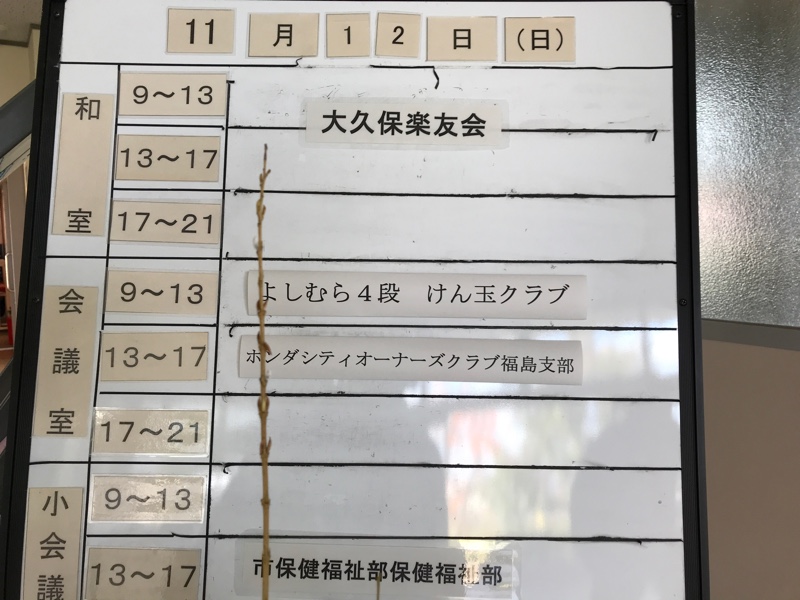 11 月 12 日 (日)
和室
9～13
大久保楽友会
13～17
17～21
会議室
9～13 よしむら４段 けん玉クラブ
13～17 ホンダシティオーナーズクラブ福島支部
17～21
小会議
9～13
13～17 市保健福祉部保健福祉部